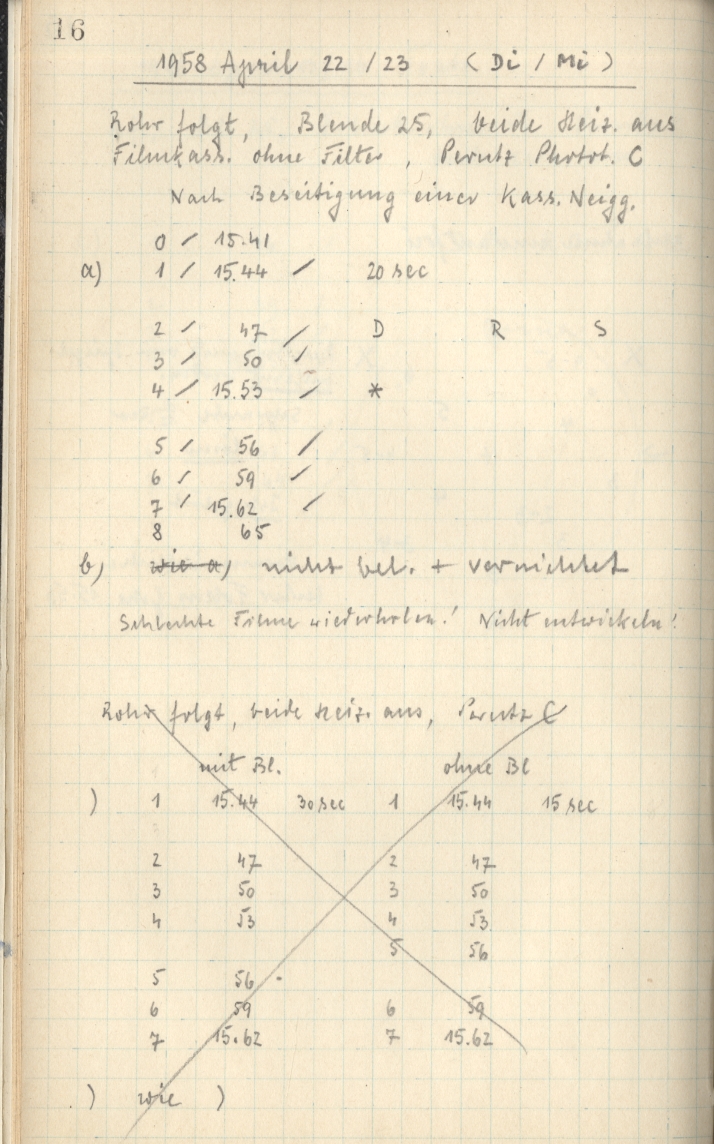 16
1958 April 22 / 23 ( Di / Mi )
Rohr folgt, Blende 25, beide Heiz. aus
Filmkass. ohne Filter, Perutz Phot. C
Nach Beseitigung einer Kass. Neigg.
0 / 15.41
a) 1 / 15.44 / 20 sec
2 / 47 / D R S
3 / 50 /
4 / 15.53 / *
5 / 56 /
6 / 59 /
7 / 15.62 /
8 65
b) wie a) nicht bel. + vernichtet
Schlechte Filme wiederholen! Nicht entwickeln!
Rohr folgt, beide Heiz. aus, Perutz C
mit Bl. ohne Bl
) 1 15.44 30 sec 1 15.44 15 sec
2 47 2 47
3 50 3 50
4 53 4 53
5 56
5 56 .
6 59 6 59
7 15.62 7 15.62
) wie )